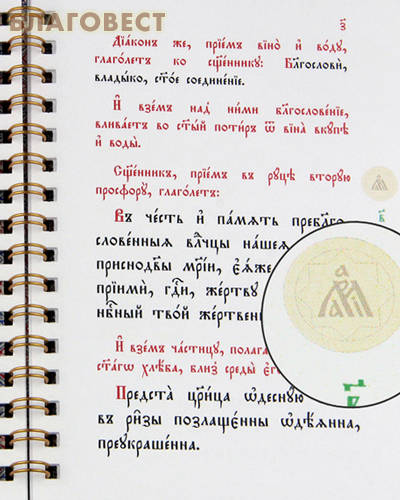 БЛАГОВЕСТ
з҃
Дїа́конъ же, прїе́мъ вїно̀ и҆ во́дꙋ,
глаго́летъ ко сщ҃е́нникꙋ: Бл҃гословѝ,
влады́ко, ст҃о́е соедине́нїе.
И҆ взе́мъ над̾ ни́ми блгⷭ҇лове́нїе,
влива́етъ во ст҃ы́й поти́ръ ѿ вїна̀ вкꙋ́пѣ
и҆ воды̀.
Сщ҃е́нникъ, прїе́мъ въ рꙋ́цѣ вторꙋ́ю
просфорꙋ̀, глаго́летъ:
Въ че́сть и҆ па́мѧть пребл҃го
слове́нныѧ влⷣчцы на́шеѧ
приснодв҃ы мр҃і́и, є҆ѧ́же
прїимѝ, гдⷭ҇и, же́ртвꙋ
нбⷭ҇ный тво́й же́ртвен
И҆ взе́мъ части́цꙋ, полага́
ст҃а́гѡ хлѣ́ба, бли́з̾ среды̀ є҆гѡ̀
Предста̀ цр҃и́ца ѡ҆деснꙋ́ю
въ ри́зы позлаще́нны ѡ҆дѣ́ѧнна,
преꙋкраше́нна.